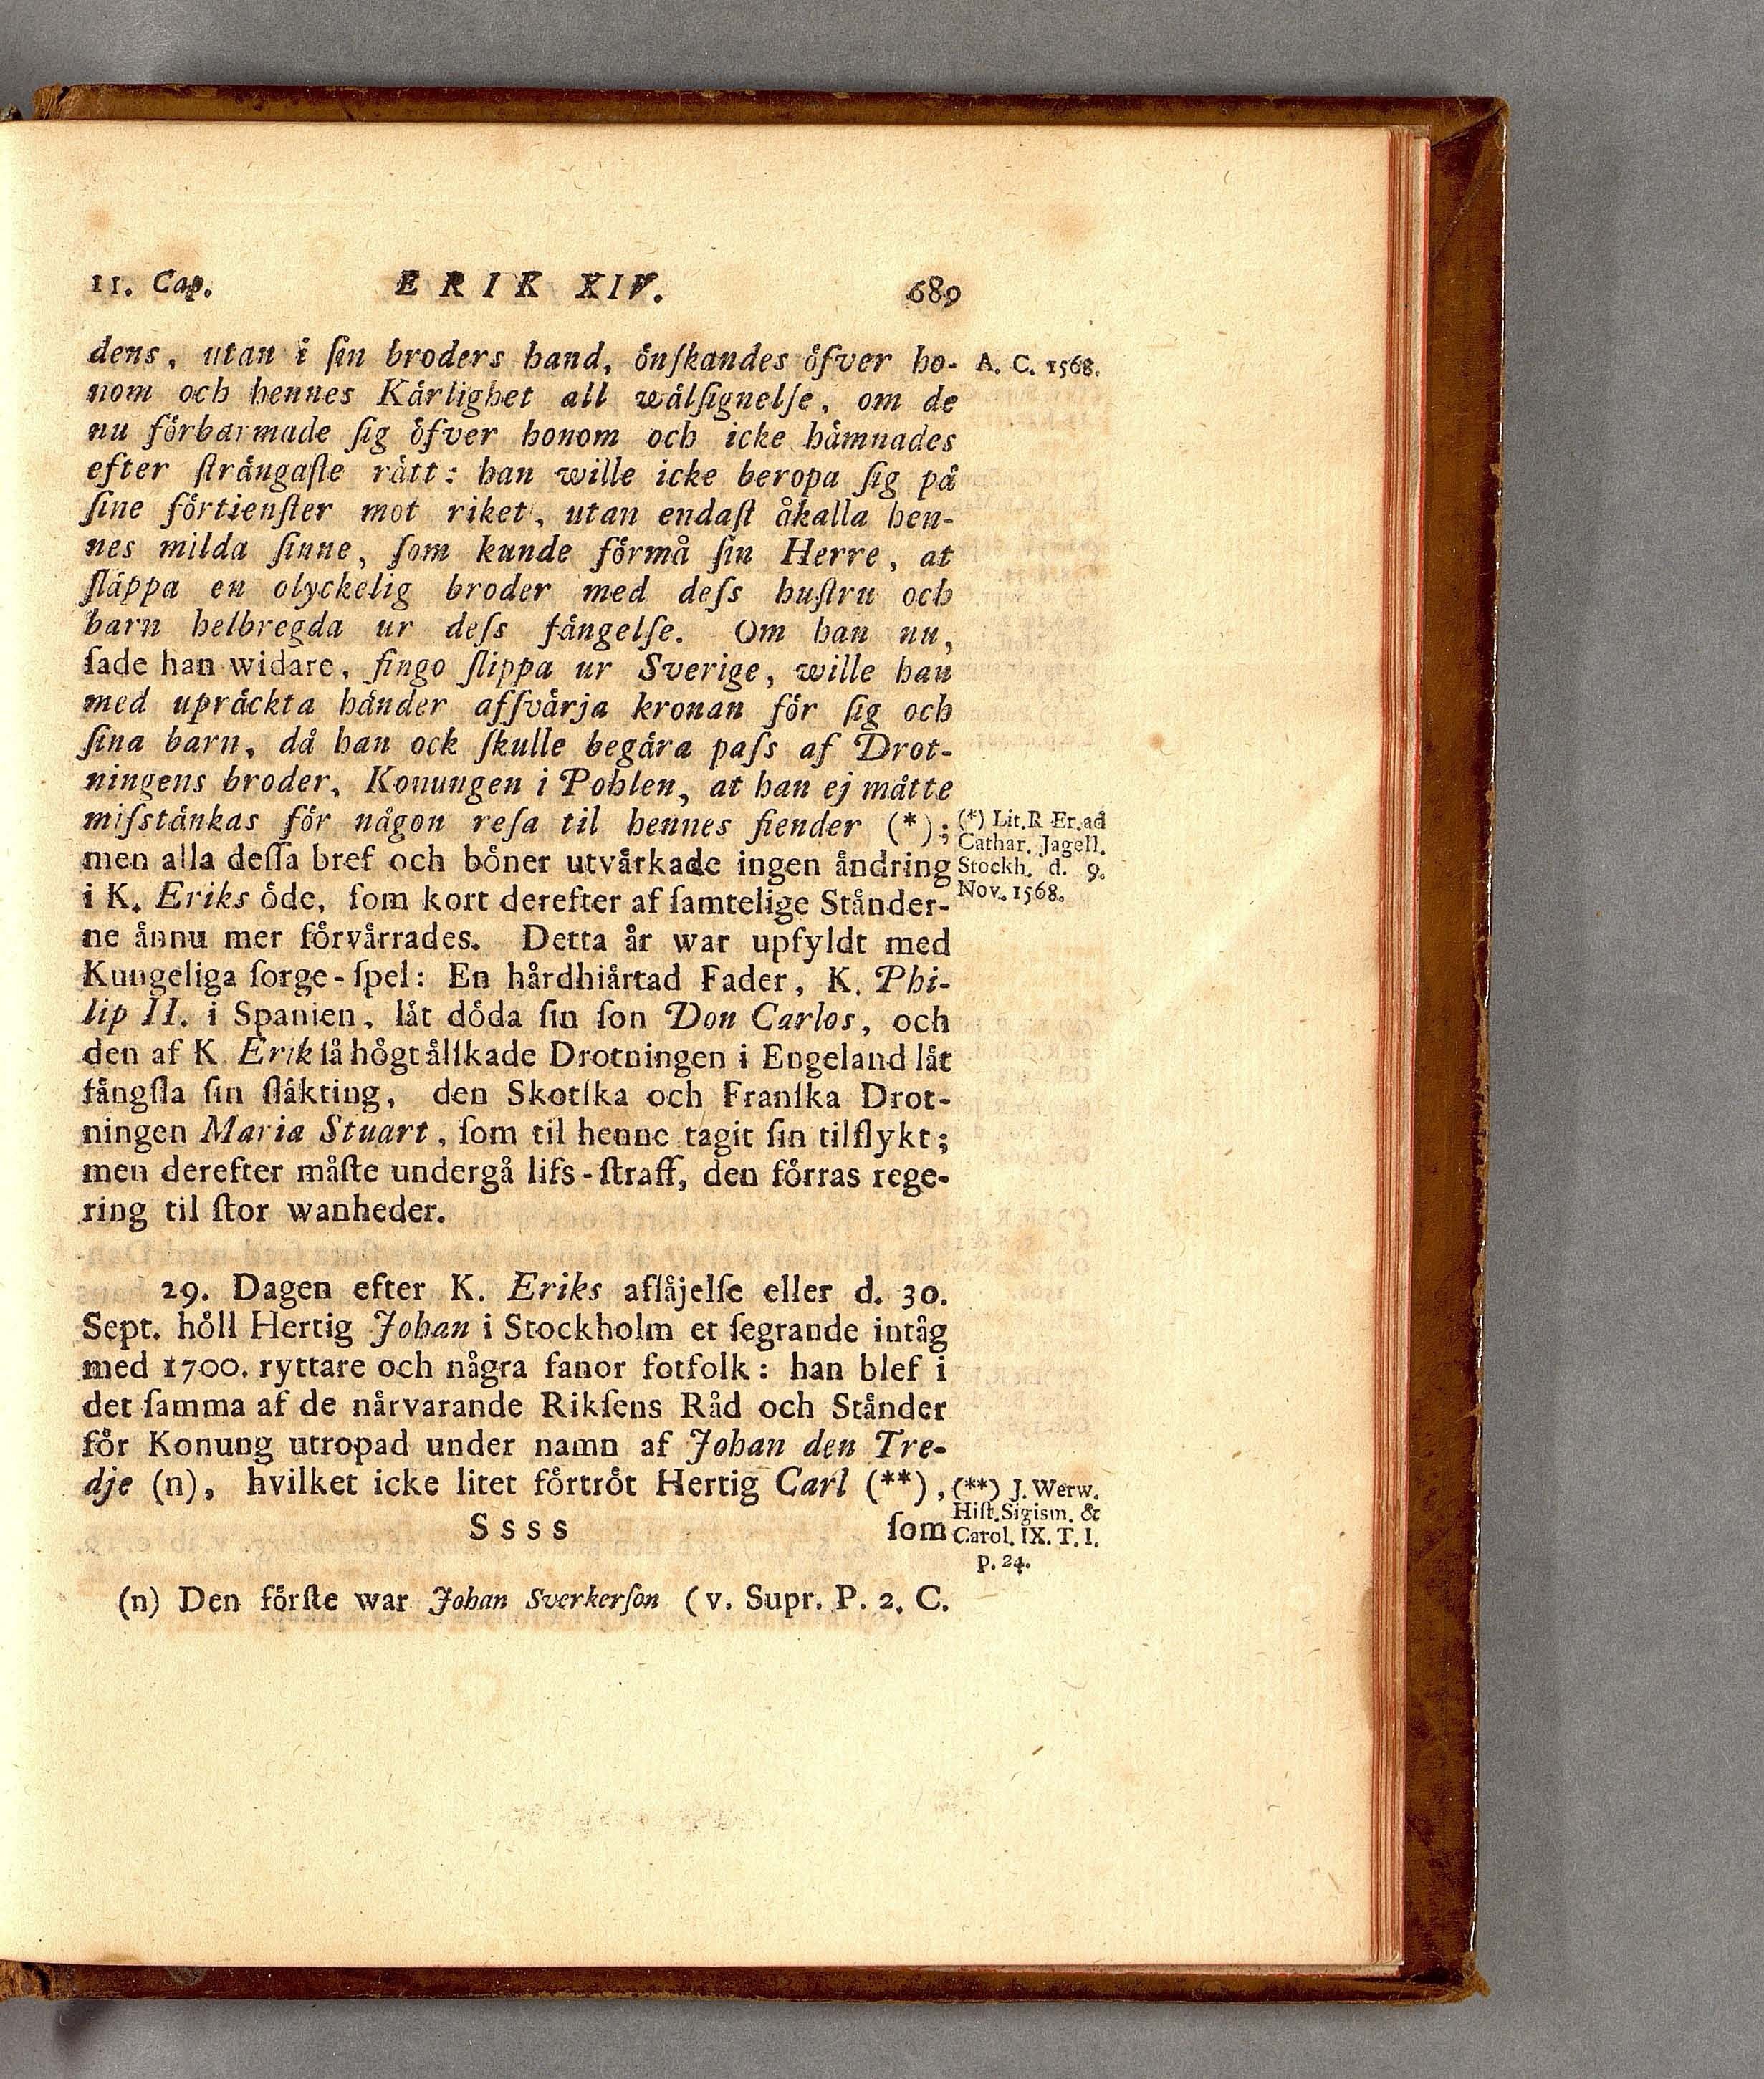 11. Cap. ERIK XIV. 689
dens, utan i ſin broders hand, önſkandes öfver ho- A. C. 1568.
nom och hennes Kärlighet all wälſignelſe, om de
nu förbarmade ſig öfver honom och icke hämnades
efter ſträngaſte rätt: han wille icke beropa ſig på
ſine förtienſter mot riket, utan endaſt åkalla hen-
nes milda ſinne, ſom kunde förmå ſin Herre, at
ſläppa en olyckelig broder med deſs huſtru och
barn helbregda ur deſs fängelſe. Om han nu,
ſade han widare, fingo ſlippa ur Sverige, wille han
med upräckta händer afſvärja kronan för ſig och
ſina barn, då han ock ſkulle begära paſs af Drot-
ningens broder, Konungen i Pohlen, at han ej måtte
miſstänkas för någon reſa til hennes fiender (*);
men alla deſſa bref och böner utvårkade ingen ändring
i K. Eriks öde, ſom kort derefter af ſamtelige Stånder-
ne ånnu mer förvårrades. Detta år war upfyldt med
Kungeliga ſorge-ſpel: En hårdhiårtad Fader, K. Phi-
lip II. i Spanien, låt döda ſin ſon Don Carlos, och
den af K Erik ſå högt ålſkade Drotningen i Engeland låt
fångſla ſin ſlåkting, den Skotſka och Franſka Drot-
ningen Maria Stuart, ſom til henne tagit ſin tilflykt;
men derefter måſte undergå lifs-ſtraff, den förras rege-
ring til ſtor wanheder.
(*) Lit. R Er. ad
Cathar. Jagell.
Stockh. d. 9.
Nov. 1568.
29. Dagen efter K. Eriks aflåjelſe eller d. 30.
Sept. höll Hertig Johan i Stockholm et ſegrande intåg
med 1700. ryttare och några fanor fotfolk: han blef i
det ſamma af de nårvarande Rikſens Råd och Stånder
för Konung utropad under namn af Johan den Tre-
dje (n), hvilket icke litet förtröt Hertig Carl (**),
Ssss ſom
(**) J. Werw.
Hiſt. Sigism. &
Carol. IX. T. I.
p. 24.
(n) Den förſte war Johan Sverkerſon (v. Supr. P. 2. C.